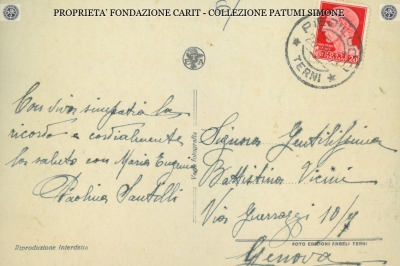 PROPRIETA' FONDAZIONE CARIT - COLLEZIONE PATUMI SIMONE
TERNI
Con viva simpatia la
ricordo e cordialmente
la saluto con Maria Eugenia
Paolina Santilli
Vera fotografia
Signora Gentilissima
Battistina Vicini
Via Guerrazzi 10/7
Genova
Riproduzione Interdetta
FOTO EDIZIONI ANGELI TERNI